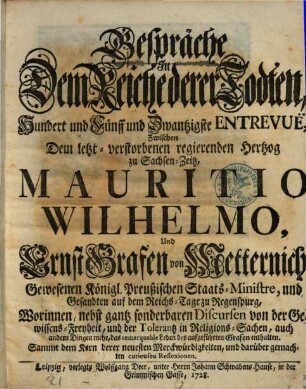 Gespräche
In
Dem Reiche derer Todten,
Hundert und Fünff und Zwantzigste ENTREVUË,
Zwischen
Dem letzt-verstorbenen regierenden Hertzog
zu Sachsen-Zeitz,
MAURITIO
WILHELMO,
Und
Ernst Grafen von Metternich,
Gewesenen Königl. Preußischen Staats-Ministre, und
Gesandten auf dem Reichs-Tage zu Regenspurg,
Worinnen, nebst gantz sonderbaren Discursen von der Ge-
wissens-Freyheit, und der Tolerantz in Religions-Sachen, auch
andern Dingen mehr, das remarquable Leben des aufgeführten Grafens enthalten.
Sammt dem Kern derer neuesten Merckwürdigkeiten, und darüber gemach-
ten curieusen Reflexionen.
Leipzig, verlegts Wolfgang Deer, unter Herr Johann Schwabens-Hause, in der
Grimmischen Gasse, 1728.